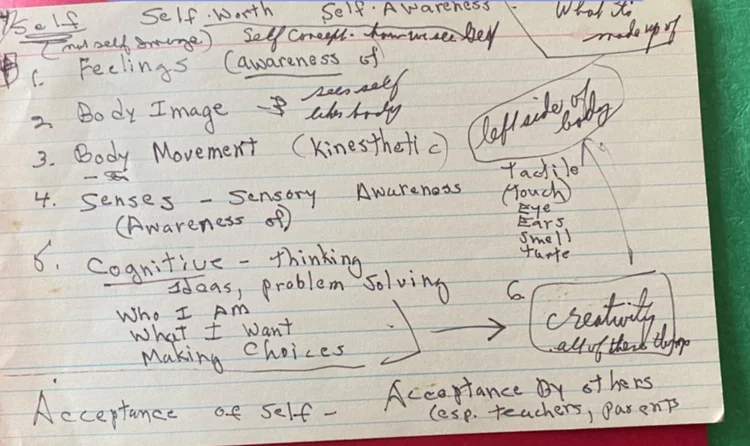 Self Self-Worth Self-Awareness What it's
(not self image) Self Concept - how we see self made up of
1. Feelings (awareness of
2 Body Image → sees self
likes body
left side of
body
3. Body Movement (Kinesthetic)
4. Senses - Sensory Awareness
(Awareness of)
tactile
(touch)
Eye
Ears
Smell
taste
5. Cognitive - thinking
Ideas, problem solving
Who I Am
What I Want
Making Choices
6. creativity
all of these things
Acceptance of Self - Acceptance By others
(esp. teachers, parents